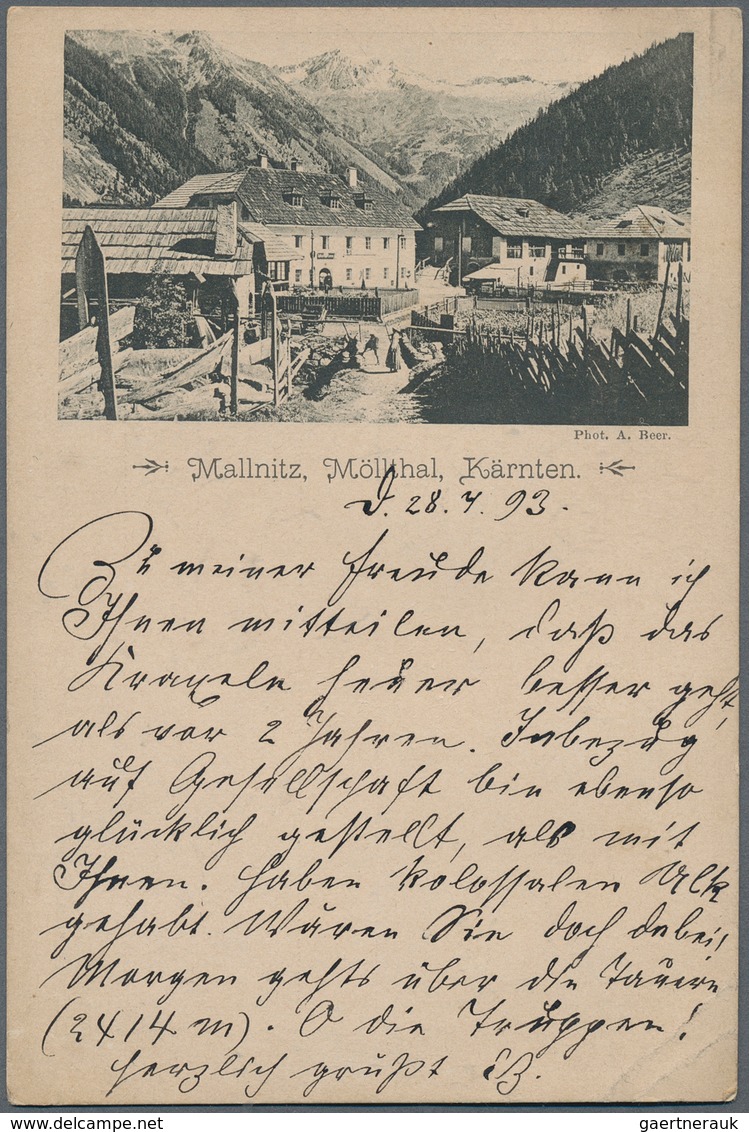 Phot. A. Beer.
Mallnitz, Möllthal, Kärnten.
d. 28.7.93.
Zu meiner Freude kann ich
Ihnen mitteilen, daß das
Kraxeln heuer besser geht,
als vor 2 Jahren. Inbezug
auf Gesellschaft bin ebenso
glücklich gestellt, als mit
Ihnen. Haben kolossalen Ulk
gehabt. Wären Sie doch dabei!
Morgen gehts über die Tauern
(2414 m). O die Truppen!
herzlich grüßt B.
gaertnerauk